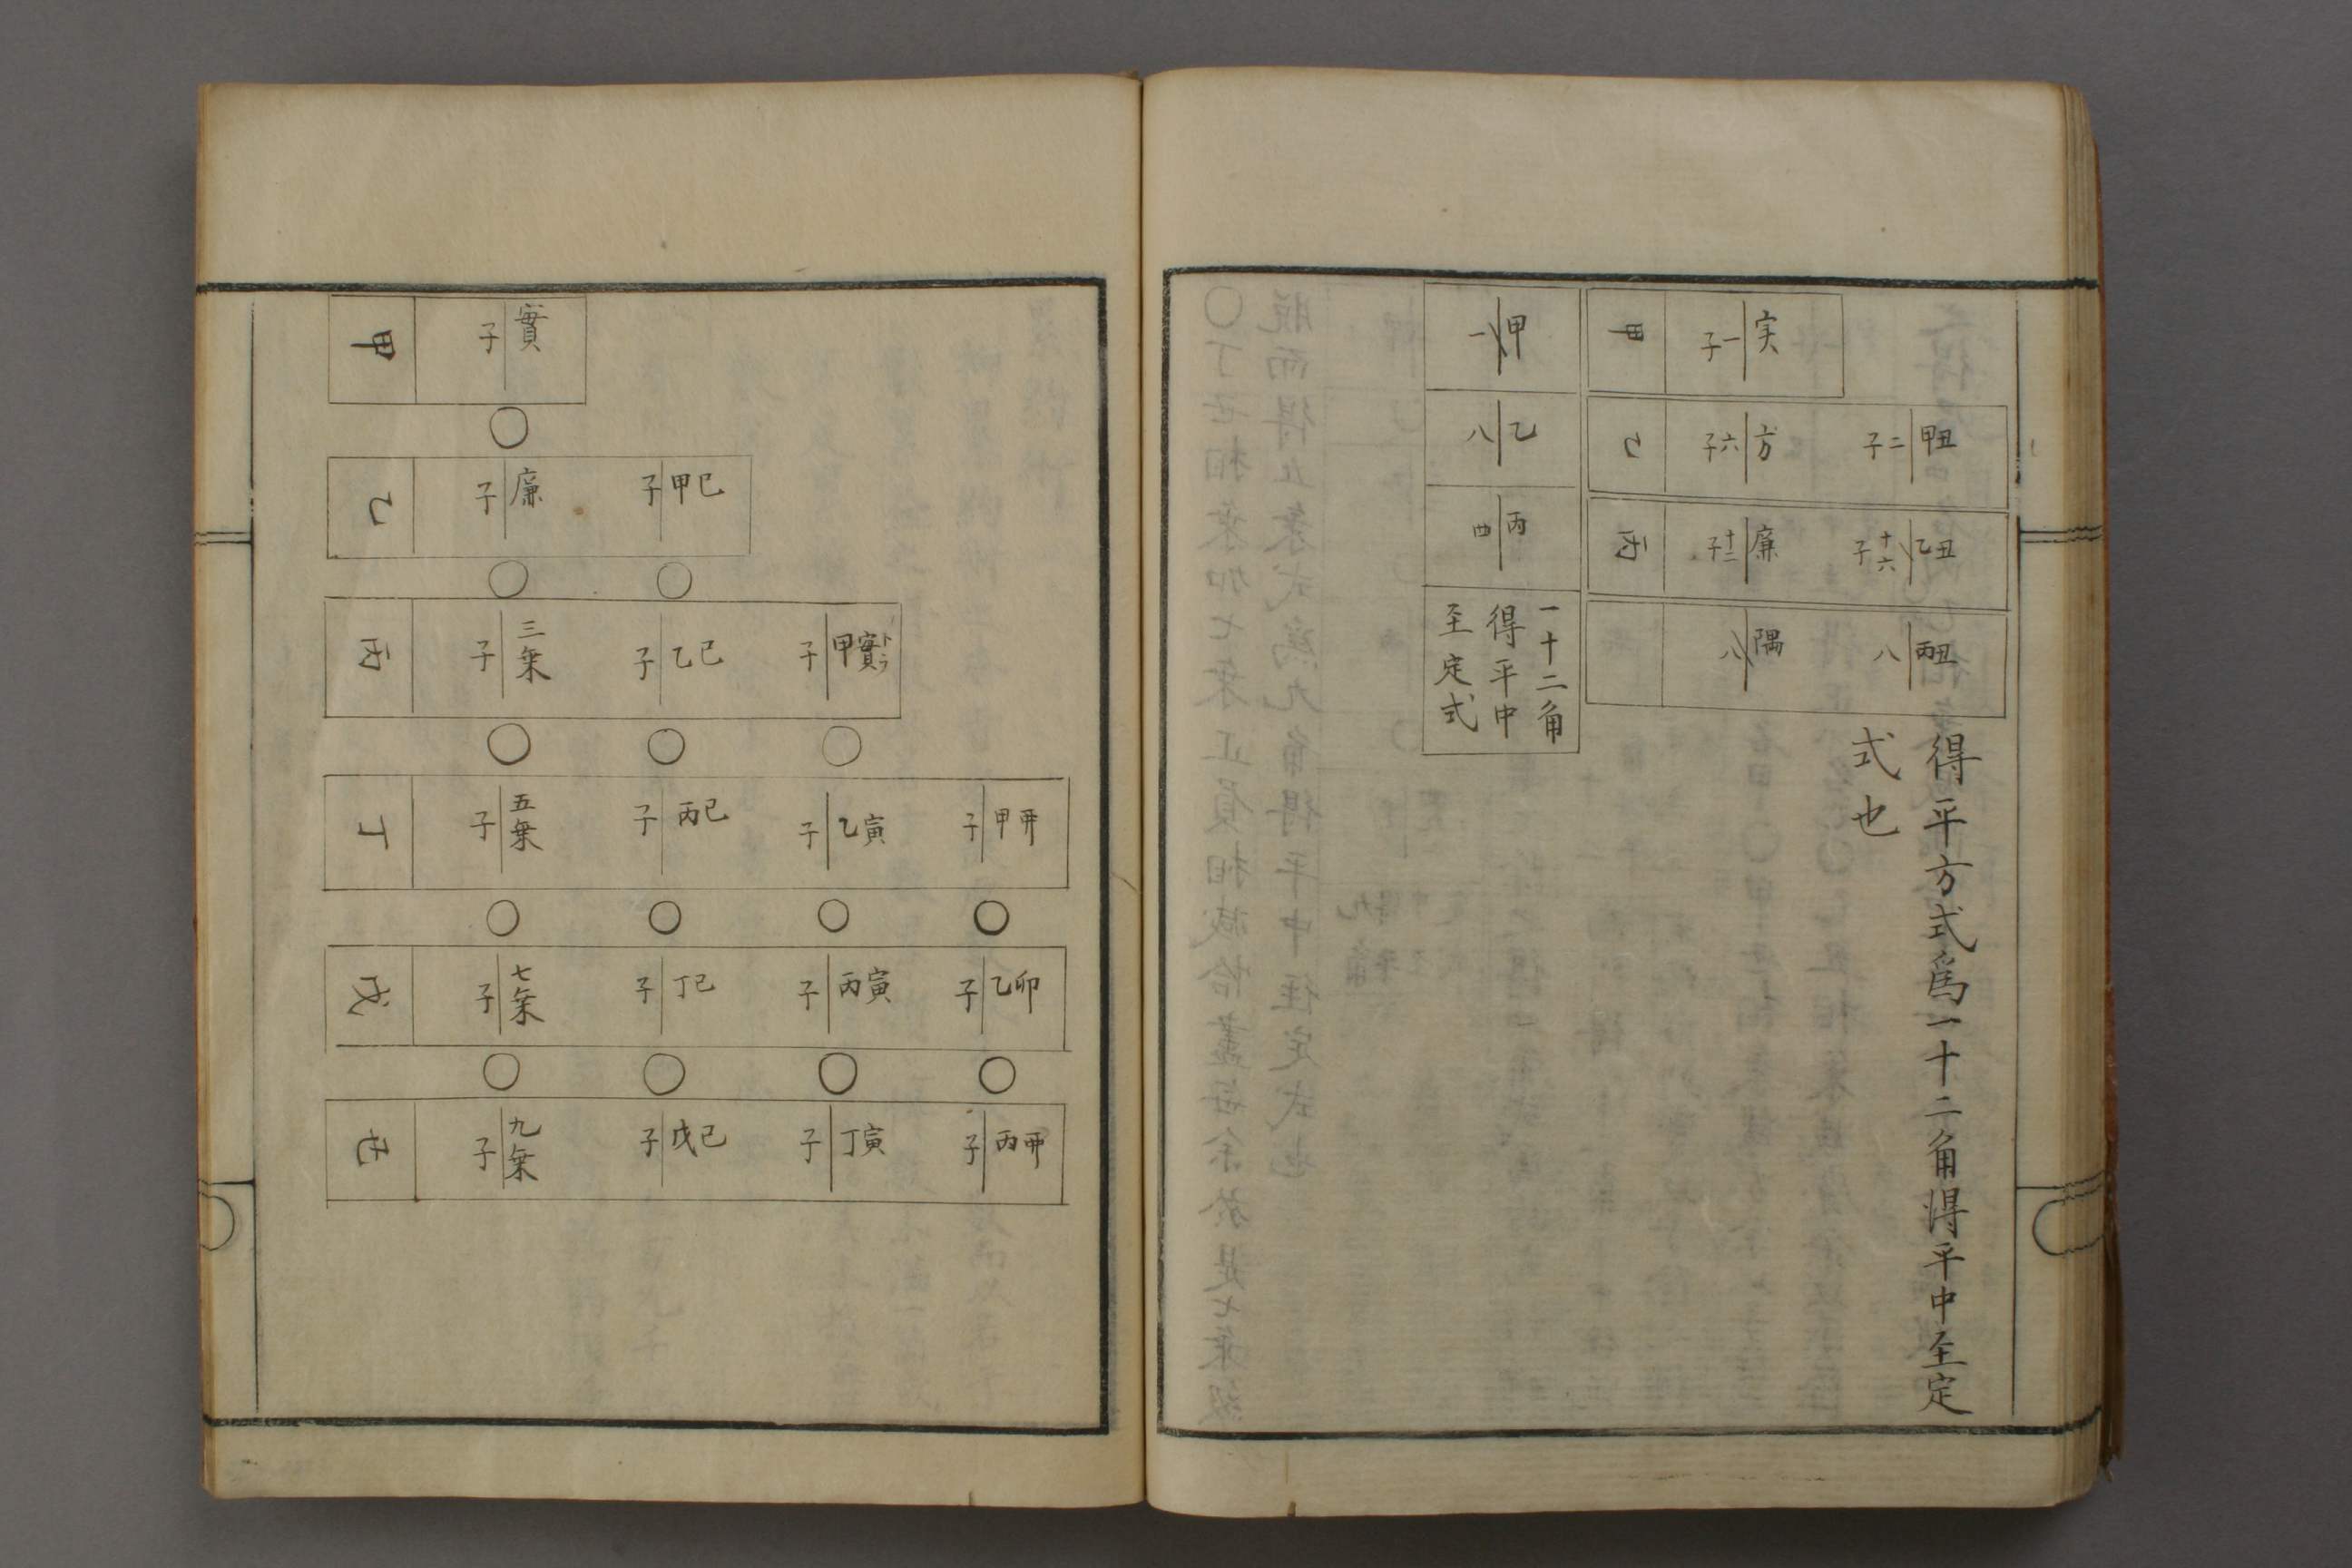 実 子一
甲
甲丑 子二
方 子六
乙
乙丑 子十六
廉 子十二
丙
丙丑 八
隅 八
得平方式爲一十二角得平中至定
式也
甲 一
乙 八
丙 四
一十二角
得平中
至定式
實 子
甲
甲巳 子
廉 子
乙
甲實 トラ 子
乙巳 子
三乗 子
丙
甲 子
乙寅 子
丙巳 子
五乗 子
丁
乙卯 子
丙寅 子
丁巳 子
七乗 子
戊
丙 子
丁寅 子
戊巳 子
九乗 子